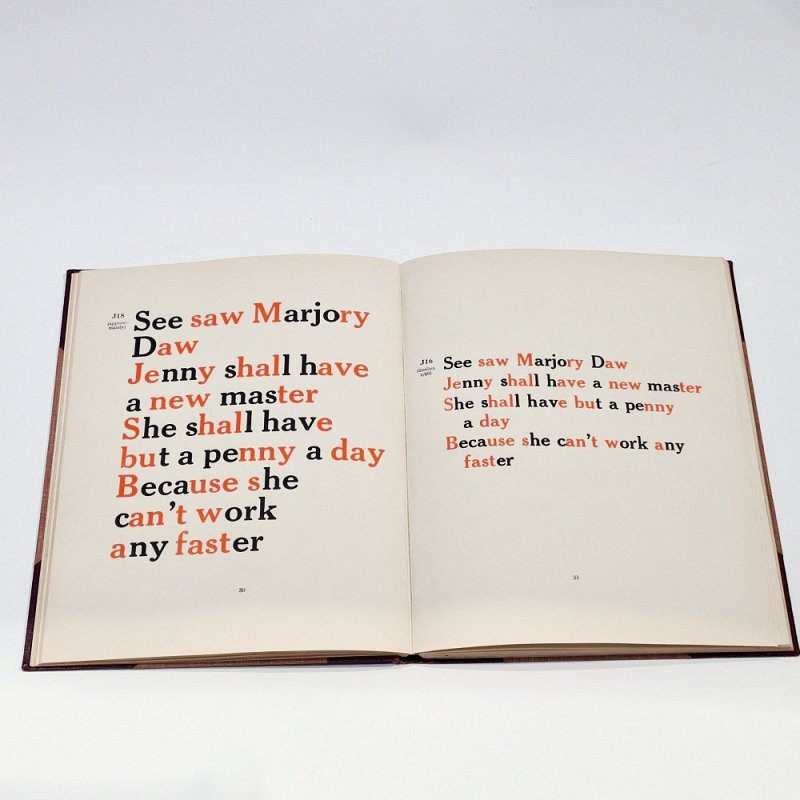 J18
See saw Marjory
Daw
Jenny shall have
a new master
She shall have
but a penny a day
Because she
can't work
any faster
30
J16
See saw Marjory Daw
Jenny shall have a new master
She shall have but a penny
a day
Because she can't work any
faster
31